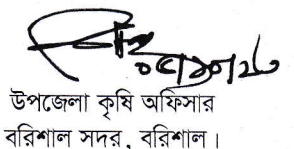 উপজেলা কৃষি অফিসার
বরিশাল সদর, বরিশাল।